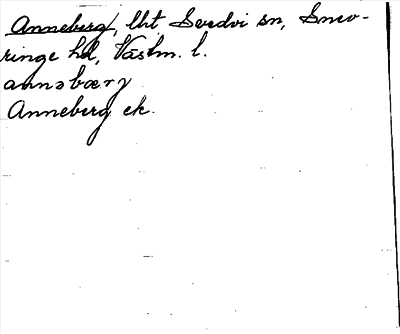 Anneberg, lht Svedvi sn, Snev-
ringe hd, Västm. l.
annəbæry
Anneberg ek.